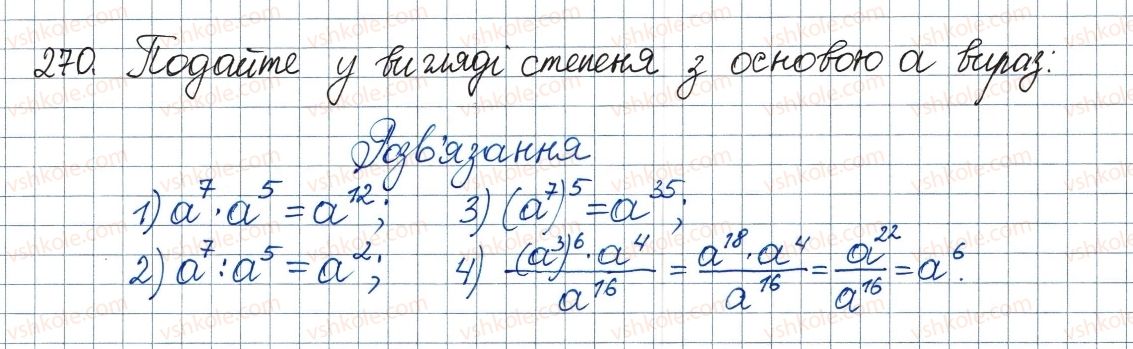 270. Подайте у вигляді степеня з основою a вираз:
Розв'язання
1) a⁷ · a⁵ = a¹²; 3) (a⁷)⁵ = a³⁵;
2) a⁷ : a⁵ = a²; 4) (a³)⁶ · a⁴ / a¹⁶ = a¹⁸ · a⁴ / a¹⁶ = a²² / a¹⁶ = a⁶.